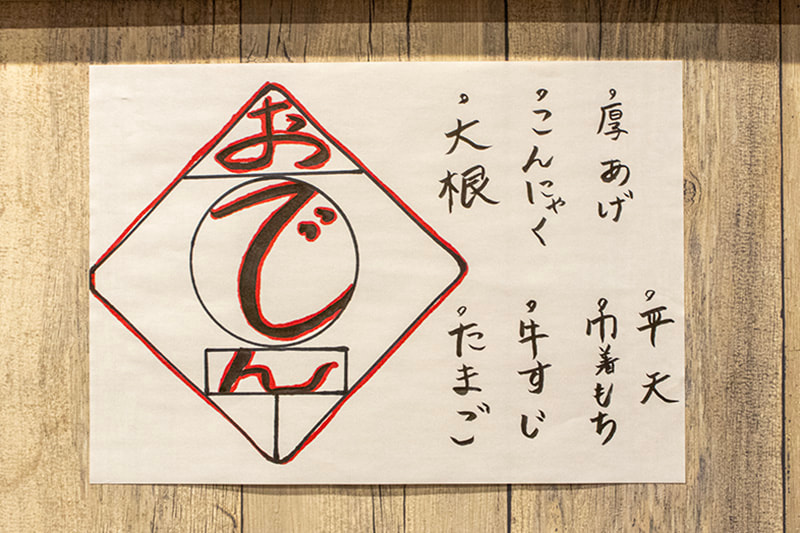 おでん
・厚あげ
・こんにゃく
・大根
・平天
・巾着もち
・牛すじ
・たまご